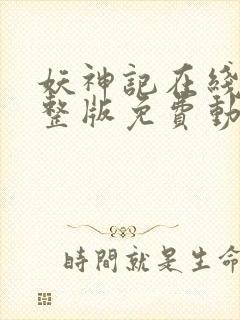 妖神記在綫
整版免費動
時間就是生命